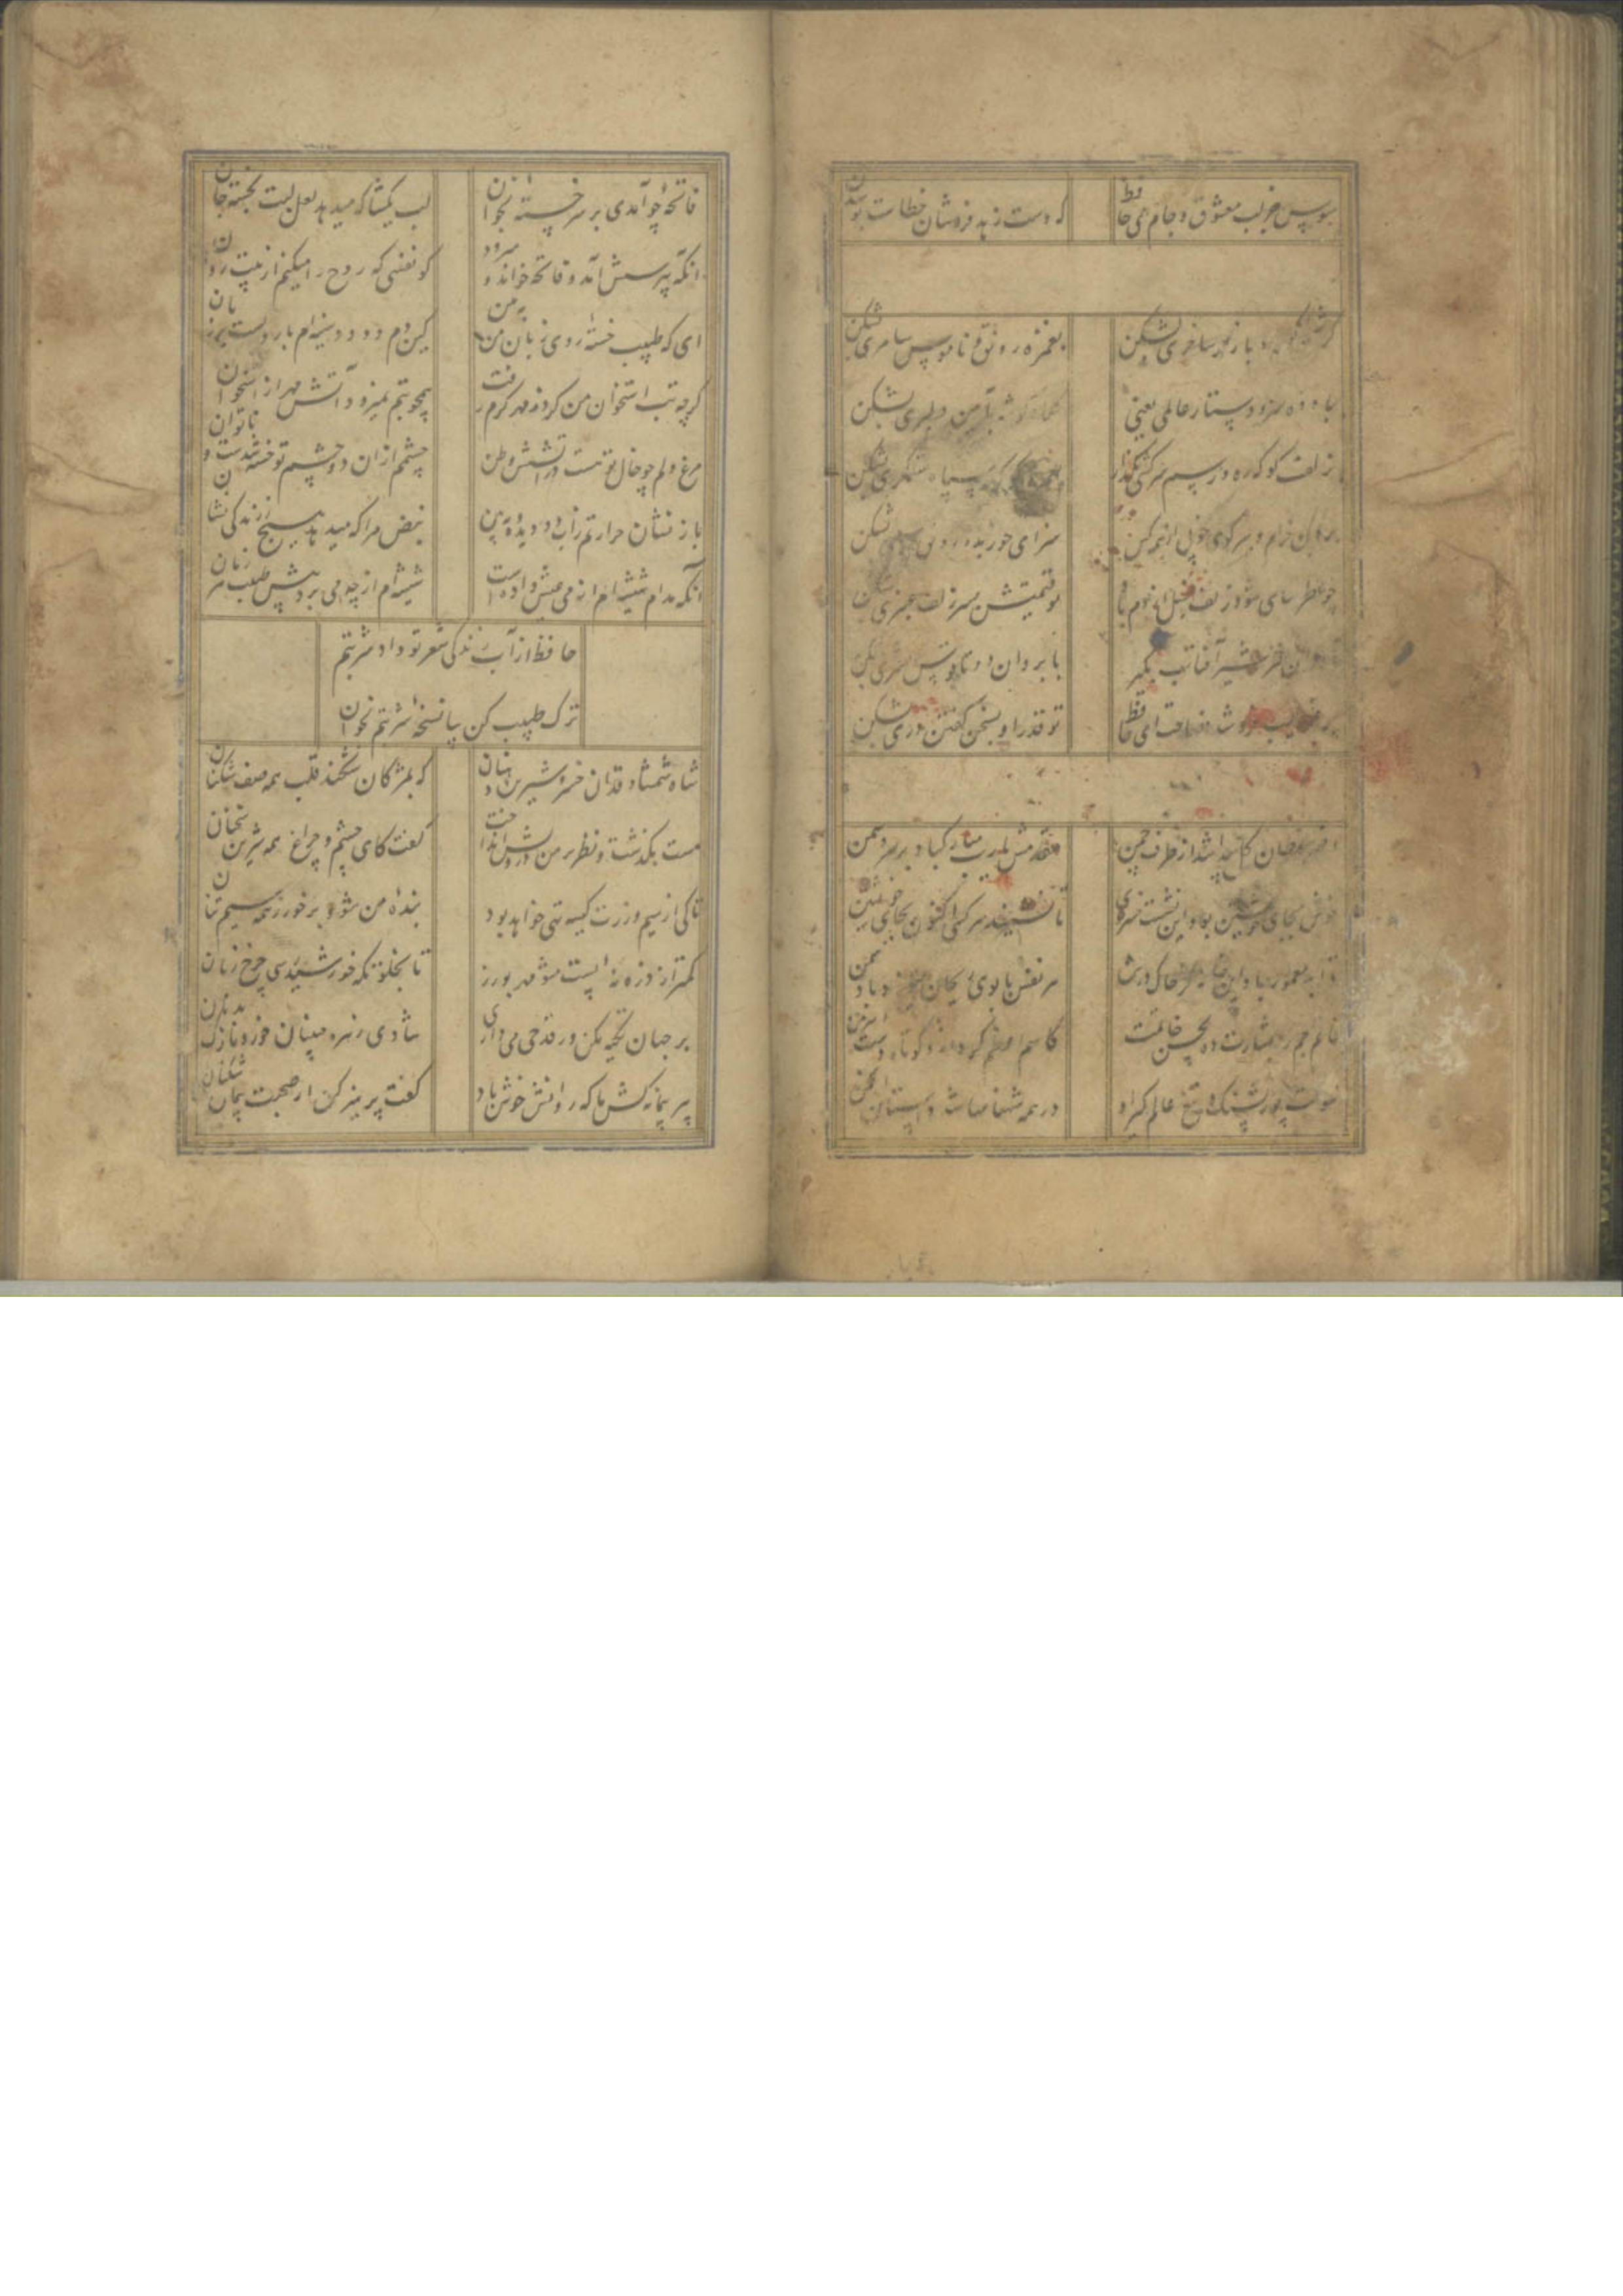 مبوس جز لب معشوق و جام می حافظ
که دست زهد فروشان خطاست بوسیدن
کرشمه و بازار ساحری بشکن
بغمزه رونق و ناموس سامری بشکن
سر و دستار عالمی یعنی
دلبری بشکن
زلف کوکه ره و رسم سرکشی بگذار
بغمزه کوکه سپاه ستمگری بشکن
برون خرام و ببر گوی خوبی از همه کس
سزای حور بده رونق پری بشکن
چو عطر سای شود زلف سنبل از دم باد
تو قیمتش بسر زلف عنبری بشکن
شیر آفتاب بگیر
بابروان دوتا قوس مشتری بشکن
چو عندلیب فروشد فصاحت ای حافظ
تو قدر او بسخن گفتن دری بشکن
افسر سلطان گل پیدا شد از طرف چمن
مقدمش یا رب مبارک باد بر سرو و سمن
خوش بجای خویشتن بود این نشست خسروی
تا نشیند هر کسی اکنون بجای خویشتن
تا ابد معمور باد این خانه کز خاک درش
هر نفس با بوی میوزد باد یمن
خاتم جم را بشارت ده بحسن خاتمت
کاسم اعظم کرد ازو کوتاه دست اهرمن
شوکت پور پشنگ و تیغ عالمگیر او
در همه شهنامها شد داستان انجمن
فاتحهٔ چو آمدی بر سر خستهٔ بخوان
لب بگشا که میدهد لعل لبت بخسته جان
انکه بپرسش آمد و فاتحه خواند و میرود
کو نفسی که روح را میکنم از پیت روان
ای که طبیب خستهٔ روی زبان من به من
کین دم و دود سینه‌ام بار دلست بر زبان
گرچه تب استخوان من کرد ز مهر گرم رفت
همچو تبم نمیرود آتش مهر از استخوان
مرغ دلم چو خال تو هست در آتشش وطن
چشمم از آن دو چشم تو خسته شدست و ناتوان
باز نشان حرارتم زآب دو دیده و ببین
نبض مرا که میدهد هیچ ز زندگی نشان
آنکه مدام شیشه‌ام از می عیش داده است
شیشه‌ام از چه می برد پیش طبیب هر زمان
حافظ از آب زندگی شعر تو داد شربتم
ترک طبیب کن بیا نسخهٔ شربتم بخوان
شاه شمشاد قدان خسرو شیرین دهنان
که بمژگان شکند قلب همه صف شکنان
مست بگذشت و نظر بر من درویش انداخت
گفت کای چشم و چراغ همه شیرین سخنان
تا کی از سیم و زرت کیسه تهی خواهد بود
بندهٔ من شو و برخور ز همه سیم تنان
کمتر از ذره نهٔ پست مشو مهر بورز
تا بخلوتگه خورشید رسی چرخ زنان
بر جهان تکیه مکن ور قدحی می داری
شادی زهره جبینان خور و نازک بدنان
پیر پیمانه کش ما که روانش خوش باد
گفت پرهیز کن از صحبت پیمان شکنان